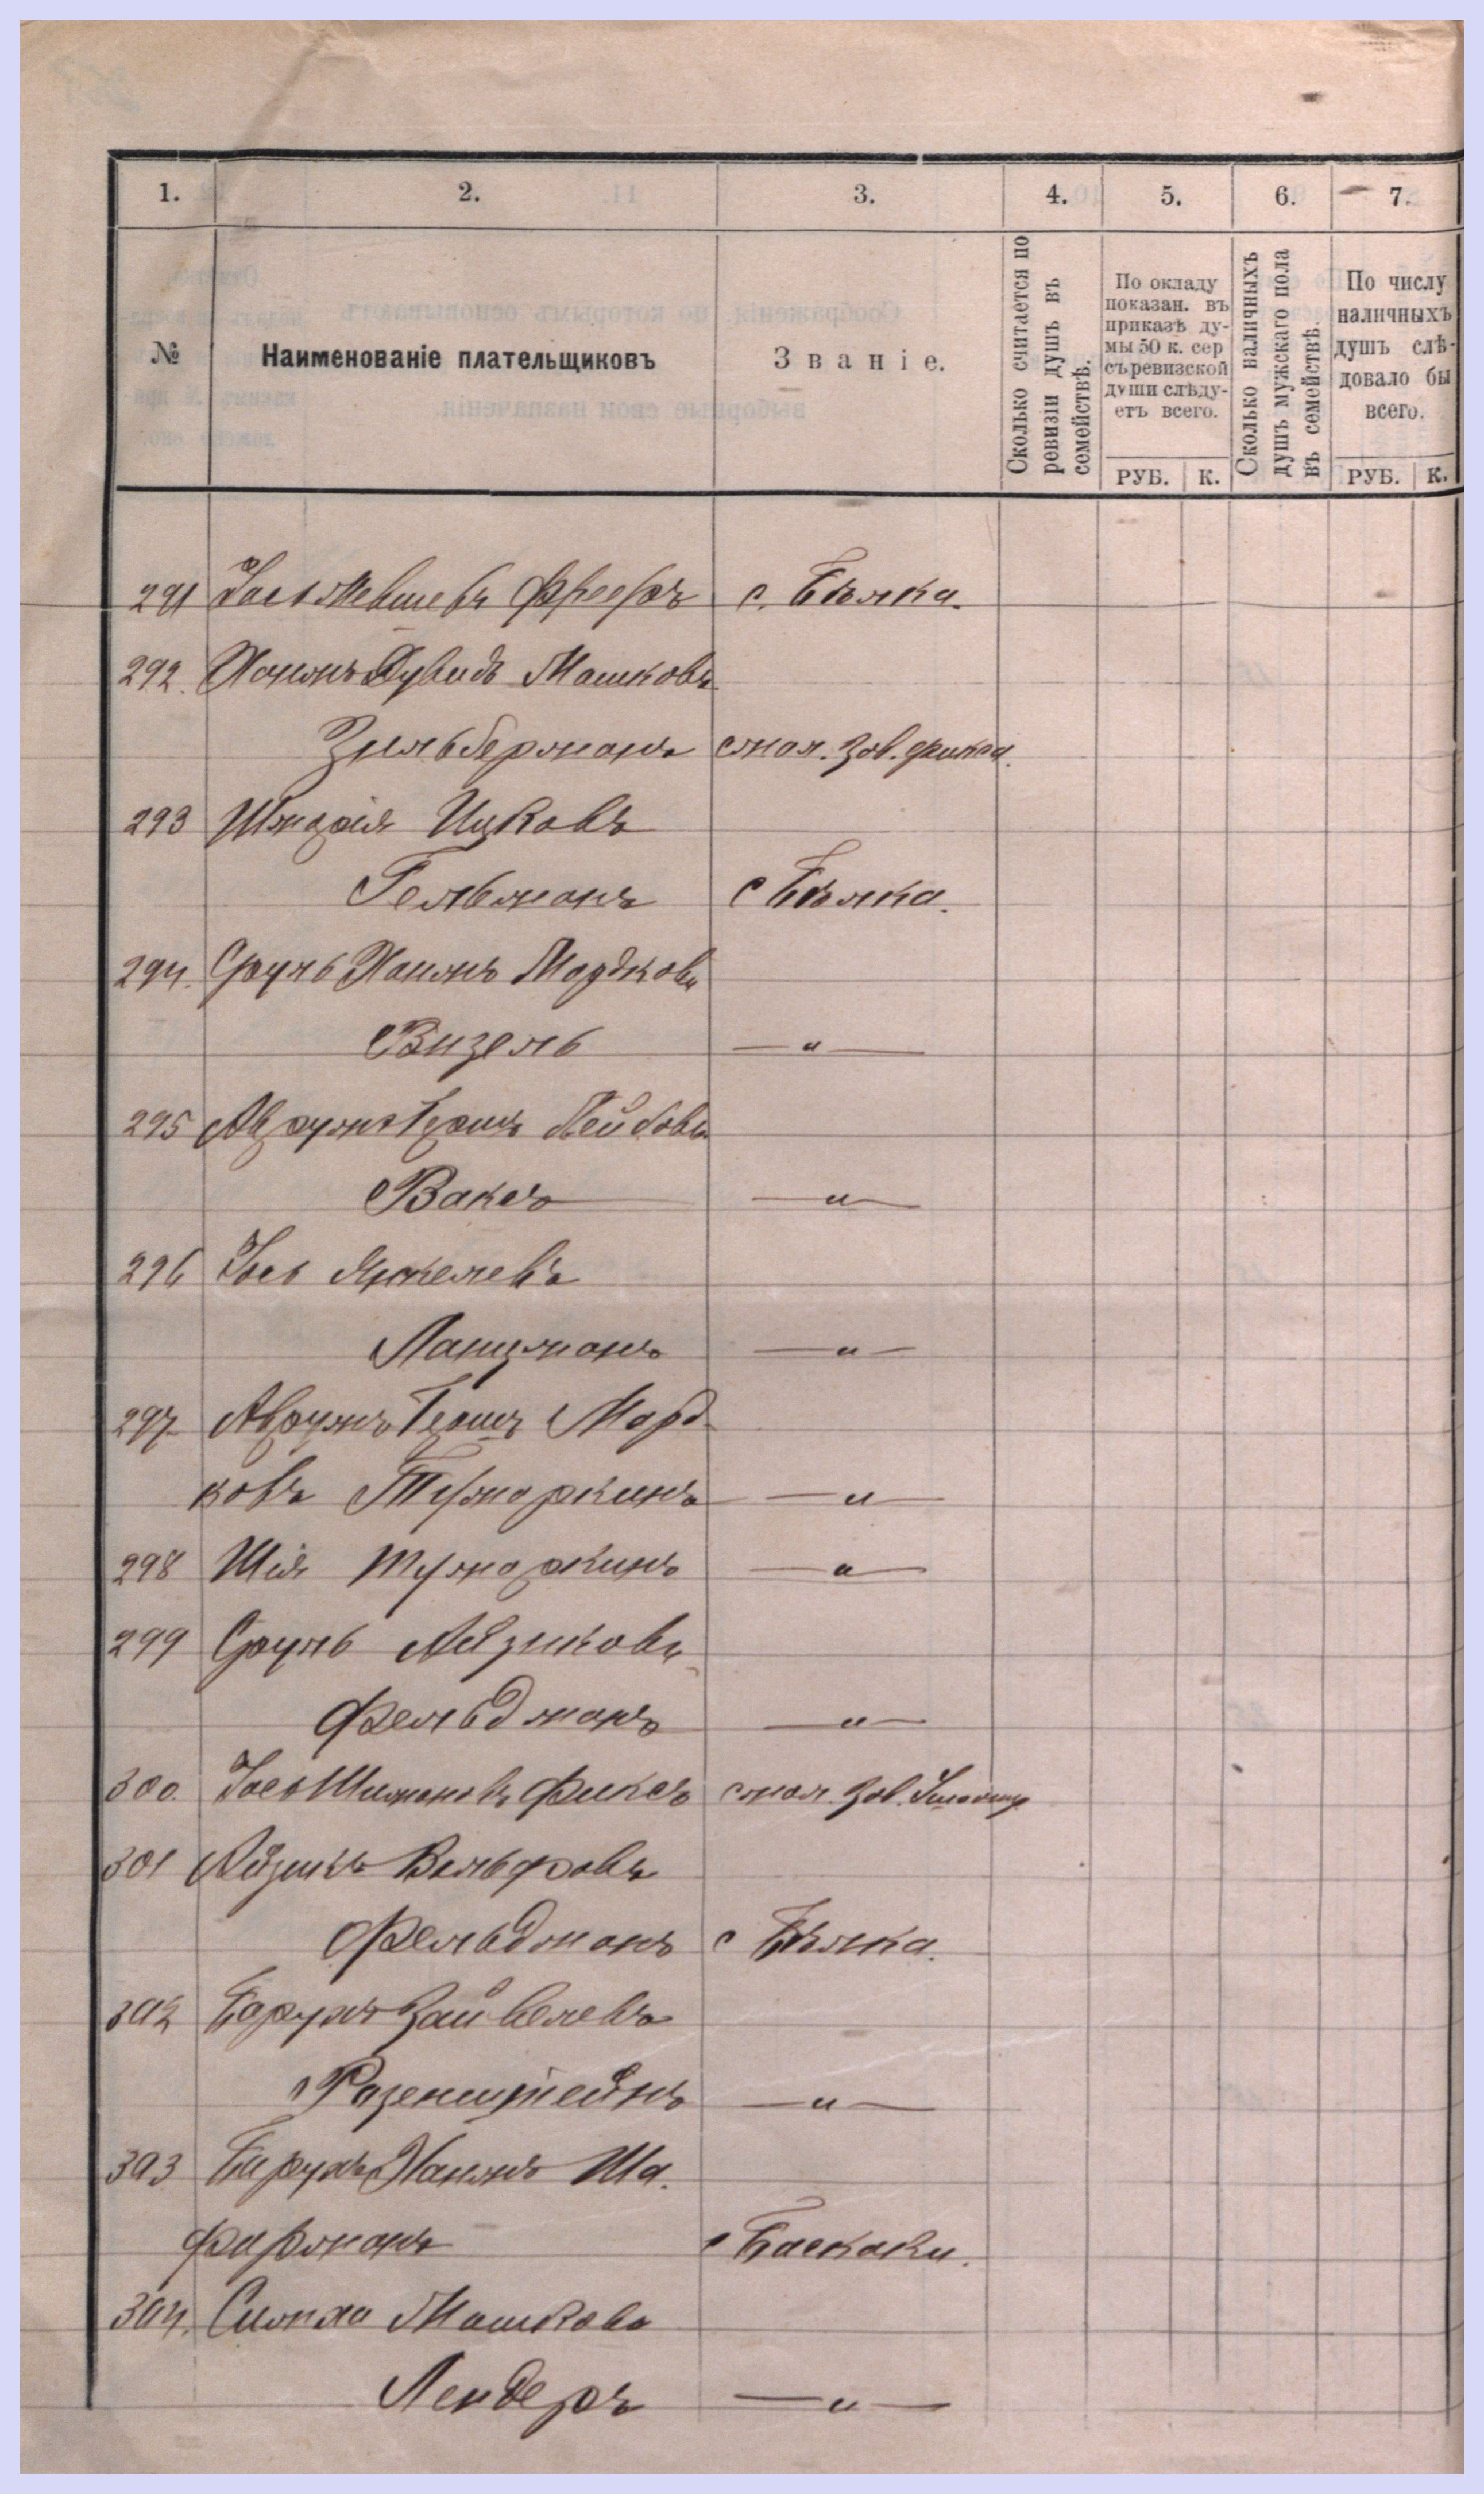 1. 2. 3. 4. 5. 6. 7.
№ Наименованіе плательщиковъ Званіе. Сколько считается по ревизіи душъ въ семействѣ. По окладу показан. въ приказѣ думы 50 к. сер съ ревизской души слѣдуетъ всего. Сколько наличныхъ душъ мужскаго пола въ семействѣ. По числу наличныхъ душъ слѣдовало бы всего.
РУБ. К. РУБ. К.
291 Іось с. Бѣлка.
292. Хаимъ Дувидъ Машковъ
Зильберманъ
293 Шмарія Ицковъ
Гельманъ с Бѣлка.
294. Сруль Хаимъ Мордковъ
Визель — " —
295 Аврумъ Гершъ Лейбовъ
Ваксъ — " —
296 Іось Янкелевъ
Ланцманъ — " —
297 Аврумъ Гершъ Морд-
ковъ Тумаркинъ — " —
298 Шія Тумаркинъ — " —
299 Сруль Айзиковъ
Фельдманъ — " —
300. Іось Шимановъ Фиксъ
301 Айзикъ Вольфовъ
Фельдманъ с Бѣлка.
302 Борухъ Зайвелевъ
Розенштейнъ — " —
303 Борухъ Хаимъ Ша.
фирманъ с Баскаки.
304. Симха Машковъ
Лендеръ — " —